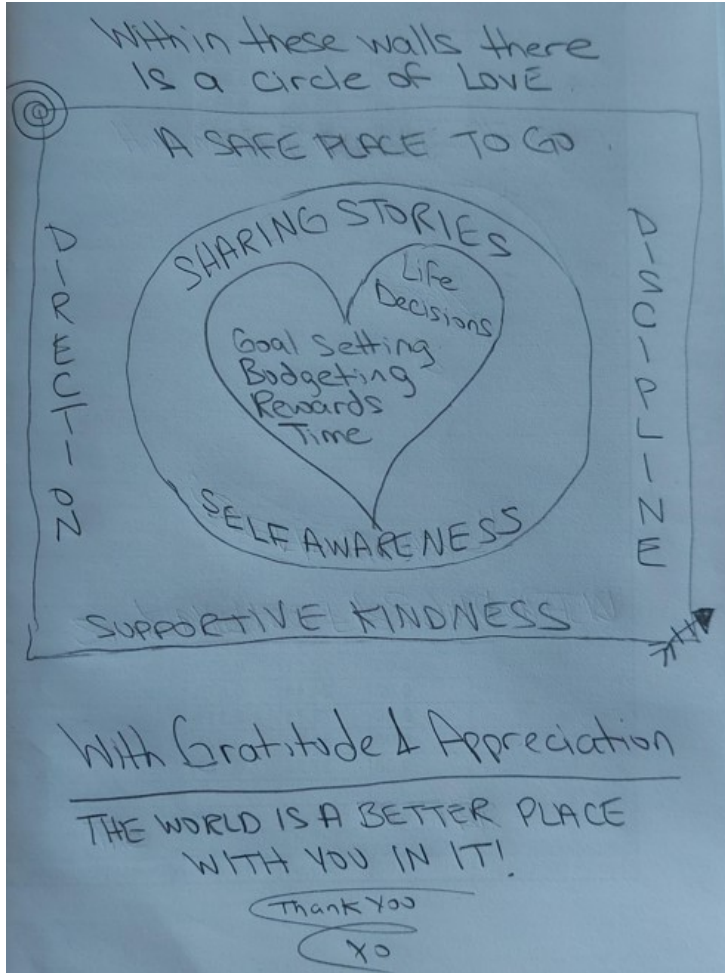 Within these walls there
Is a circle of LOVE
A SAFE PLACE TO GO
DIRECTION
DISCIPLINE
SHARING STORIES
Life
Decisions
Goal Setting
Budgeting
Rewards
Time
SELF AWARENESS
SUPPORTIVE KINDNESS
With Gratitude & Appreciation
THE WORLD IS A BETTER PLACE
WITH YOU IN IT!
Thank You
XO